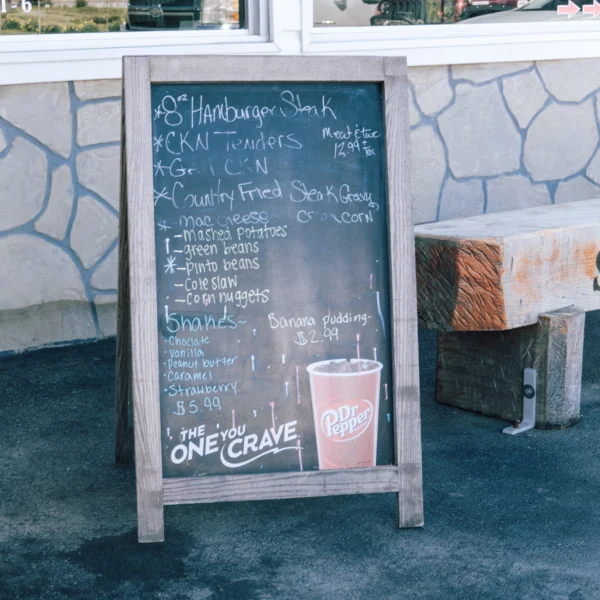 1-6
*8oz HAmburger Steak
*CKN Tenders
Meat & Two
12.99 + Tax
*Grill CKN
*Country Fried Steak Gravy
* mac cheese
corn
- mashed potatoes
- green beans
*- pinto beans
- Coleslaw
- Corn nuggets
Shakes~
• Choclate
• Vanilla
• Peanut butter
• Caramel
• Strawberry
$5.99
Banana pudding-
$2.99
THE
ONE YOU
CRAVE
Dr
Pepper